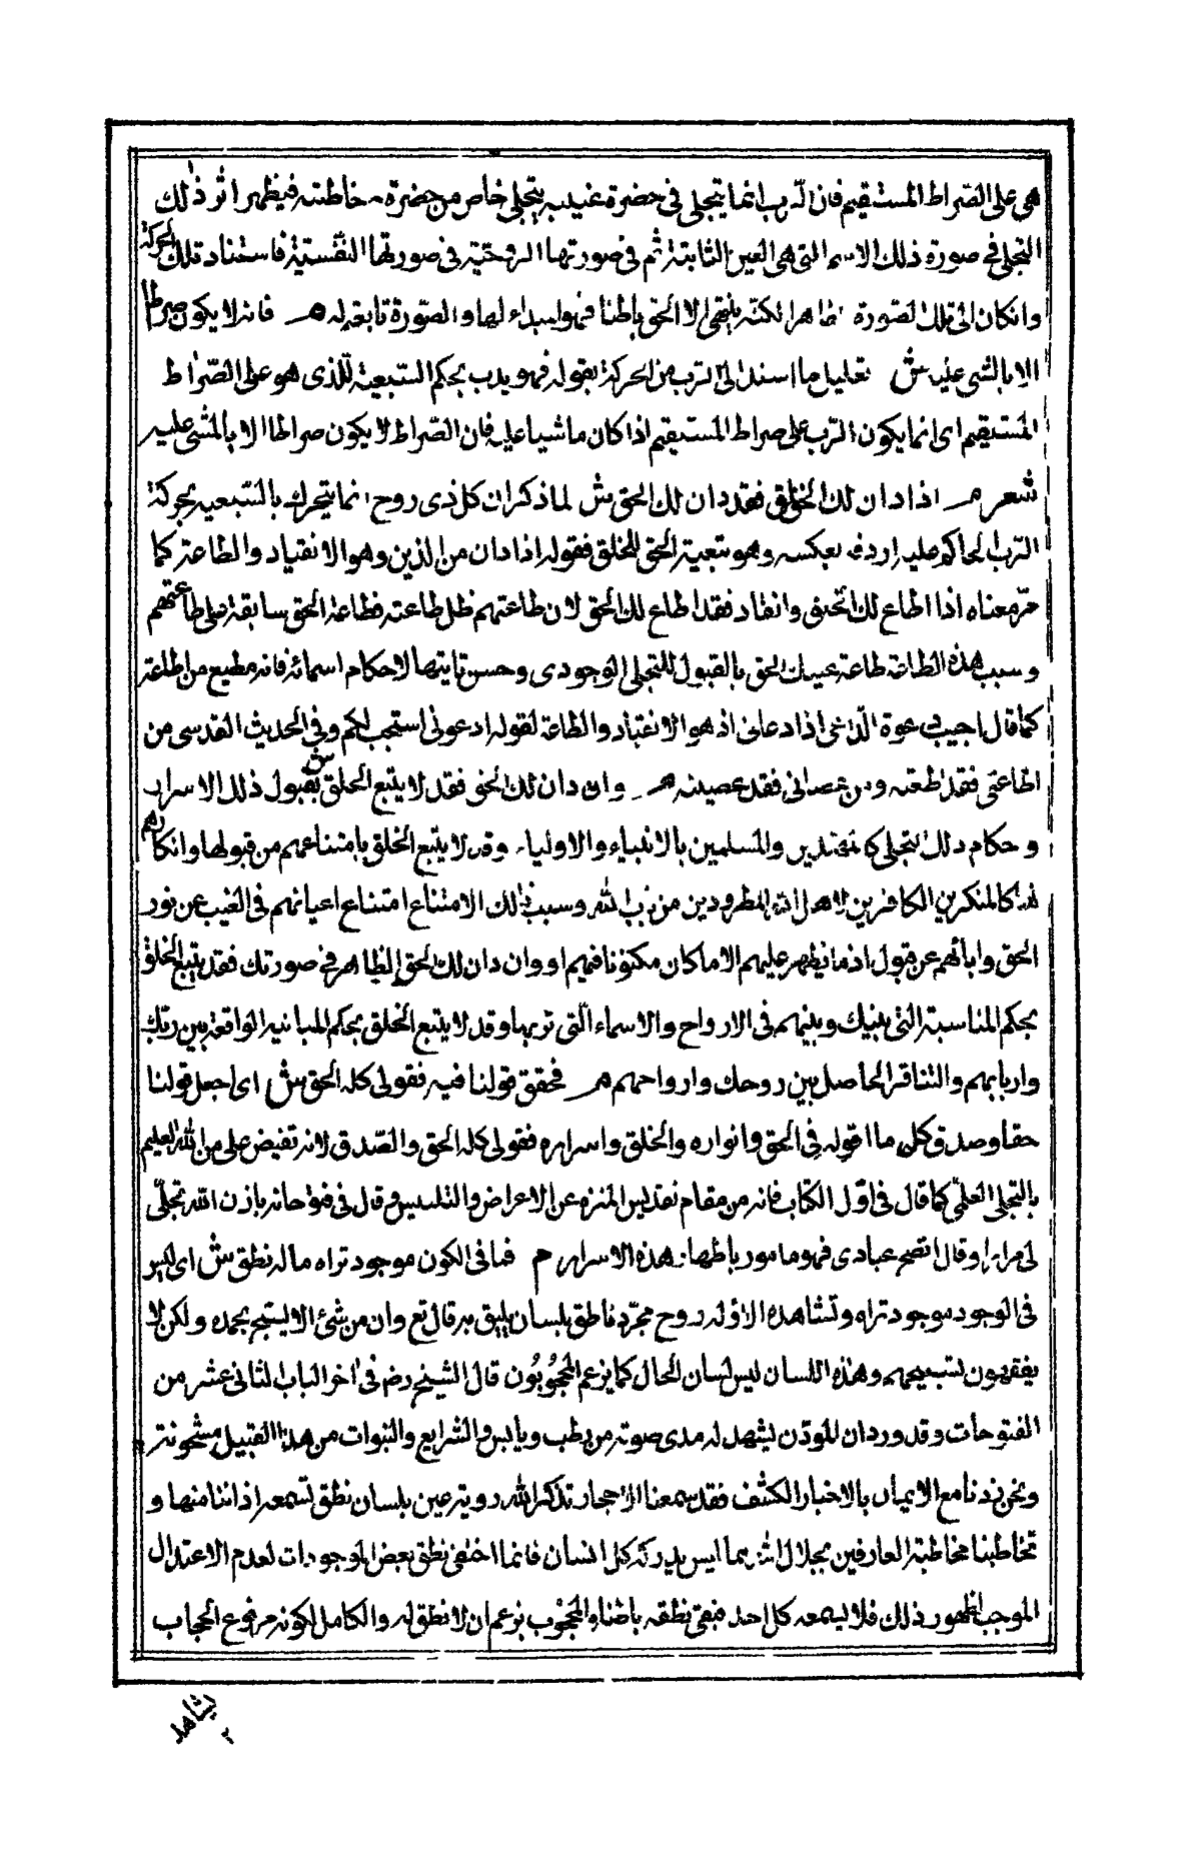 هى على الصراط المستقيم فان الرب انما يتجلى فى حضرة غيبه يتجلى خاص من حضرة خاطته فيظهر اثر ذلك
التجلى فى صورة ذلك الاسم التى هى العين الثابتة ثم فى صورتها الروحية فى صورتها النفسية فاستناد تلك الحركة
وانكان الى تلك الصورة ظاهرا لكنه ينتهى الا الحق باطنا فهو لها والصورة تابعة له م فانه لا يكون صراطا
الا بالمشى عليه ش تعليل ما اسند الى الرب من الحركة بقوله فهو يدب بحكم التبعية للذى هو على الصراط
المستقيم اى انما يكون الرب على صراط المستقيم اذا كان ماشيا عليه فان الصراط لا يكون صراطا الا بالمشى عليه
شعر م اذا دان لك الخلق فقد دان لك الحق ش لما ذكر ان كل ذى روح انما يتحرك بالتبعيه بحركة
الرب الحاكم عليه اردف بعكسه وهو تبعية الحق للخلق فقوله اذا دان من الدين وهو الانقياد والطاعة كما
مر معناه اذا اطاع لك الخلق وانقاد فقد اطاع لك الحق لان طاعتهم ظل طاعته فطاعة الحق سابقة على طاعتهم
وسبب هذه الطاعة طاعة عينك الحق بالقبول للتجلى الوجودى وحسن تأيتها لاحكام اسمائه فانه مطيع من اطاعه
كما قال اجيب دعوة الداعى اذا دعانى اذ هو الانقياد والطاعة لقوله ادعونى استجب لكم وفى الحديث القدسى من
اطاعنى فقد اطعته ومن عصانى فقد عصيته م وان دان لك الحق فقد لا يتبع الخلق ش بقبول ذلك الاسرار
وحكام ذلك التجلى كالمهتدين والمسلمين بالانبياء والاولياء وقد لا يتبع الخلق بامتناعهم من قبولها وانكارهم
لها كالمنكرين الكافرين لاهل الله المطرودين من باب الله وسبب ذلك الامتناع امتناع اعيانهم فى الغيب عن نور
الحق وابائهم عن قبول اذ ما يظهر عليهم الا ما كان مكنونا فيهم او وان دان لك الحق الظاهر فى صورتك فقد يتبع الخلق
بحكم المناسبة التى بينك وبينهم فى الارواح والاسماء التى تربها وقد لا يتبع الخلق بحكم المباينه الواقعة بين ربك
واربابهم والتنافر الحاصل بين روحك وارواحهم م فحقق قولنا فيه فقولى كله الحق ش اى اجعل قولنا
حقا وصدق كل ما اقوله فى الحق وانواره والخلق واسراره فقولى كله الحق والصدق لانه تفيض على من الله العليم
بالتجلى العلمى كما قال فى اول الكتاب فانه من مقام تقديس المنزه عن الاعراض والتلبيس وقال فى فتوحاته باذن الله تجلى
لى مرارا وقال انصح عبادى فهو مامور باظهار هذه الاسرار م فما فى الكون موجود تراه ماله نطق ش اى ليس
فى الوجود موجود تراه وتشاهده الا وله روح مجرد ناطق بلسان يليق به قال تع وان من شئ الا يسبح بحمده ولكن لا
يفقهون تسبيحهم وهذه اللسان ليس لسان الحال كما يزعم المحجوبون قال الشيخ رض فى اخر الباب الثانى عشر من
الفتوحات وقد ورد ان المؤذن يشهد له مدى صوته من رطب ويابس والشرايع والنبوات من هذا القبيل مشحونة
ونحن زدنا مع الايمان بالاخبار الكشف فقد سمعنا الاحجار تذكر الله رؤية عين بلسان نطق تسمعه اذاننا منها و
تخاطبنا مخاطبة العارفين بجلال الله مما ليس يدركه كل انسان فانما اختفى نطق بعض الموجودات لعدم الاعتدال
الموجب لظهور ذلك فلا يسمعه كل احد فبقى نطقه باطنا والمحجوب يزعم ان لا نطق له والكامل لكونه مرفوع الحجاب
يشاهد
٢